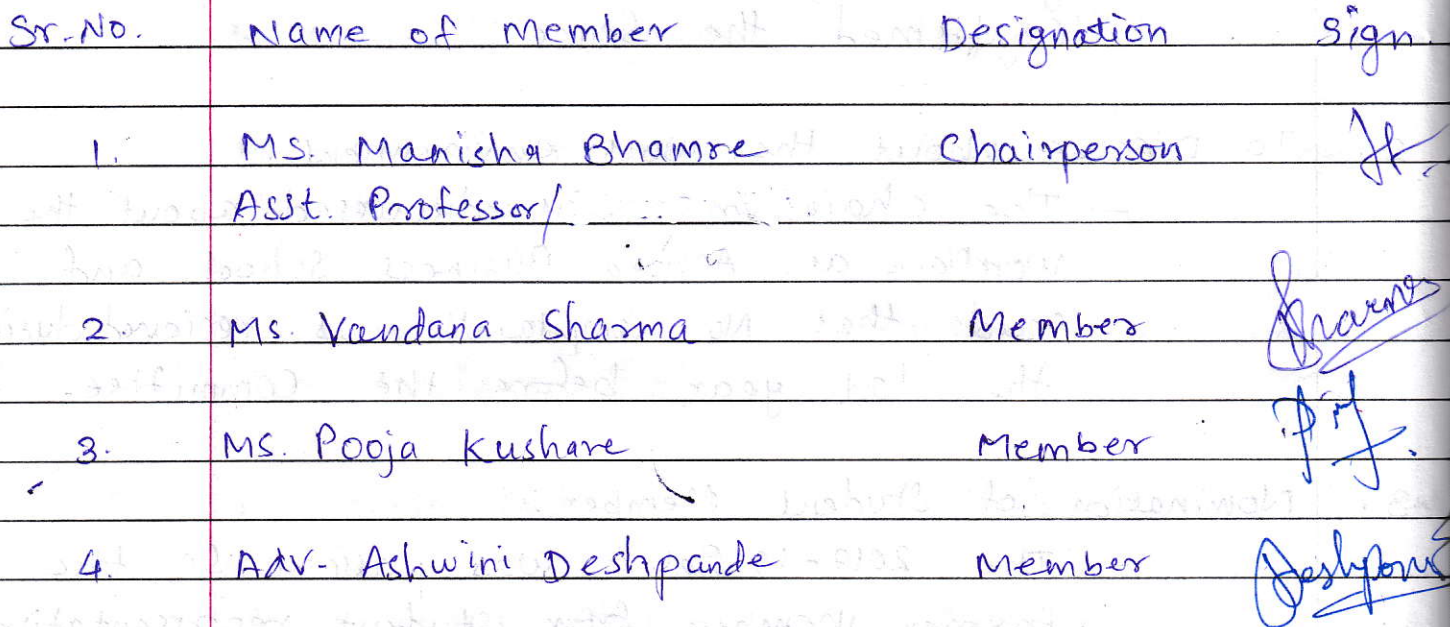 Sr. No. Name of member Designation Sign.
1. Ms. Manisha Bhamre Chairperson
Asst. Professor/
2. Ms. Vandana Sharma Member Sharma
3. Ms. Pooja Kushare Member
4. Adv. Ashwini Deshpande Member